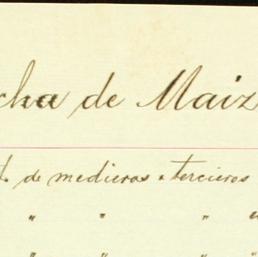 cha de Maiz
de medieros a terceros
" " " "
" " " "